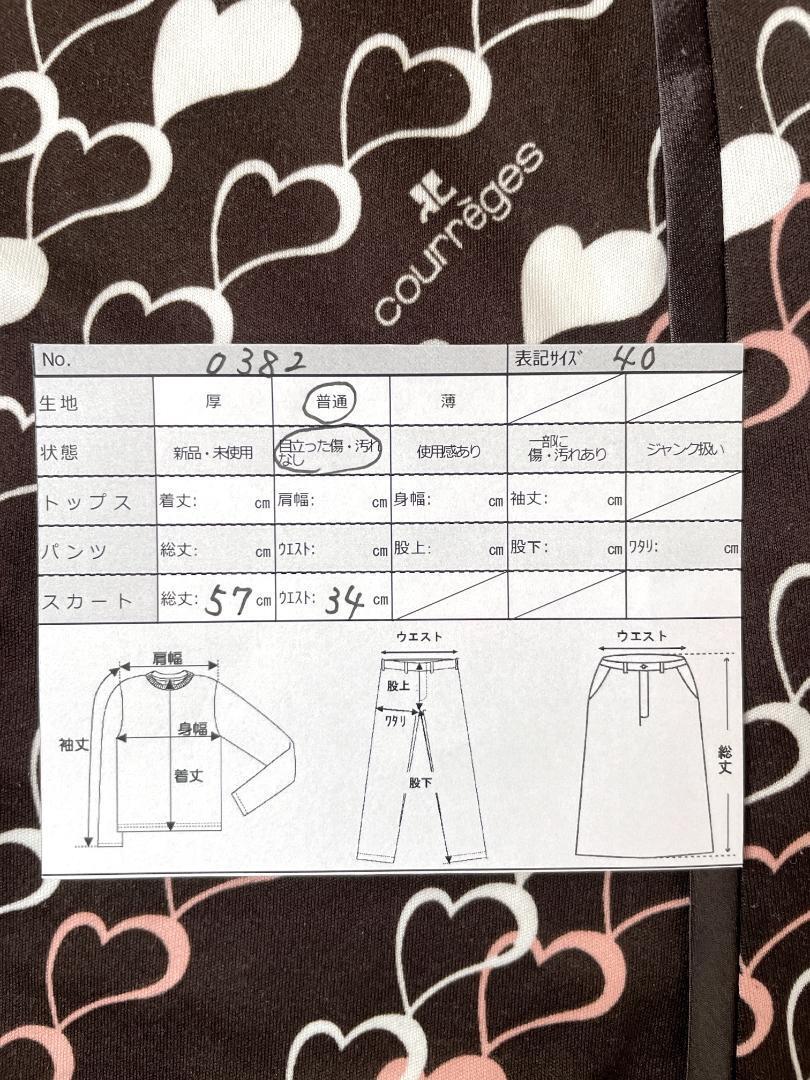 courrèges
No. 0382 表記ｻｲｽﾞ 40
生地 厚 普通 薄
状態 新品・未使用 目立った傷・汚れなし 使用感あり 一部に傷・汚れあり ジャンク扱い
トップス 着丈: cm 肩幅: cm 身幅: cm 袖丈: cm
パンツ 総丈: cm ｳｴｽﾄ: cm 股上: cm 股下: cm ﾜﾀﾘ: cm
スカート 総丈: 57 cm ｳｴｽﾄ: 34 cm
肩幅
袖丈
身幅
着丈
ウエスト
股上
ﾜﾀﾘ
股下
ウエスト
総丈